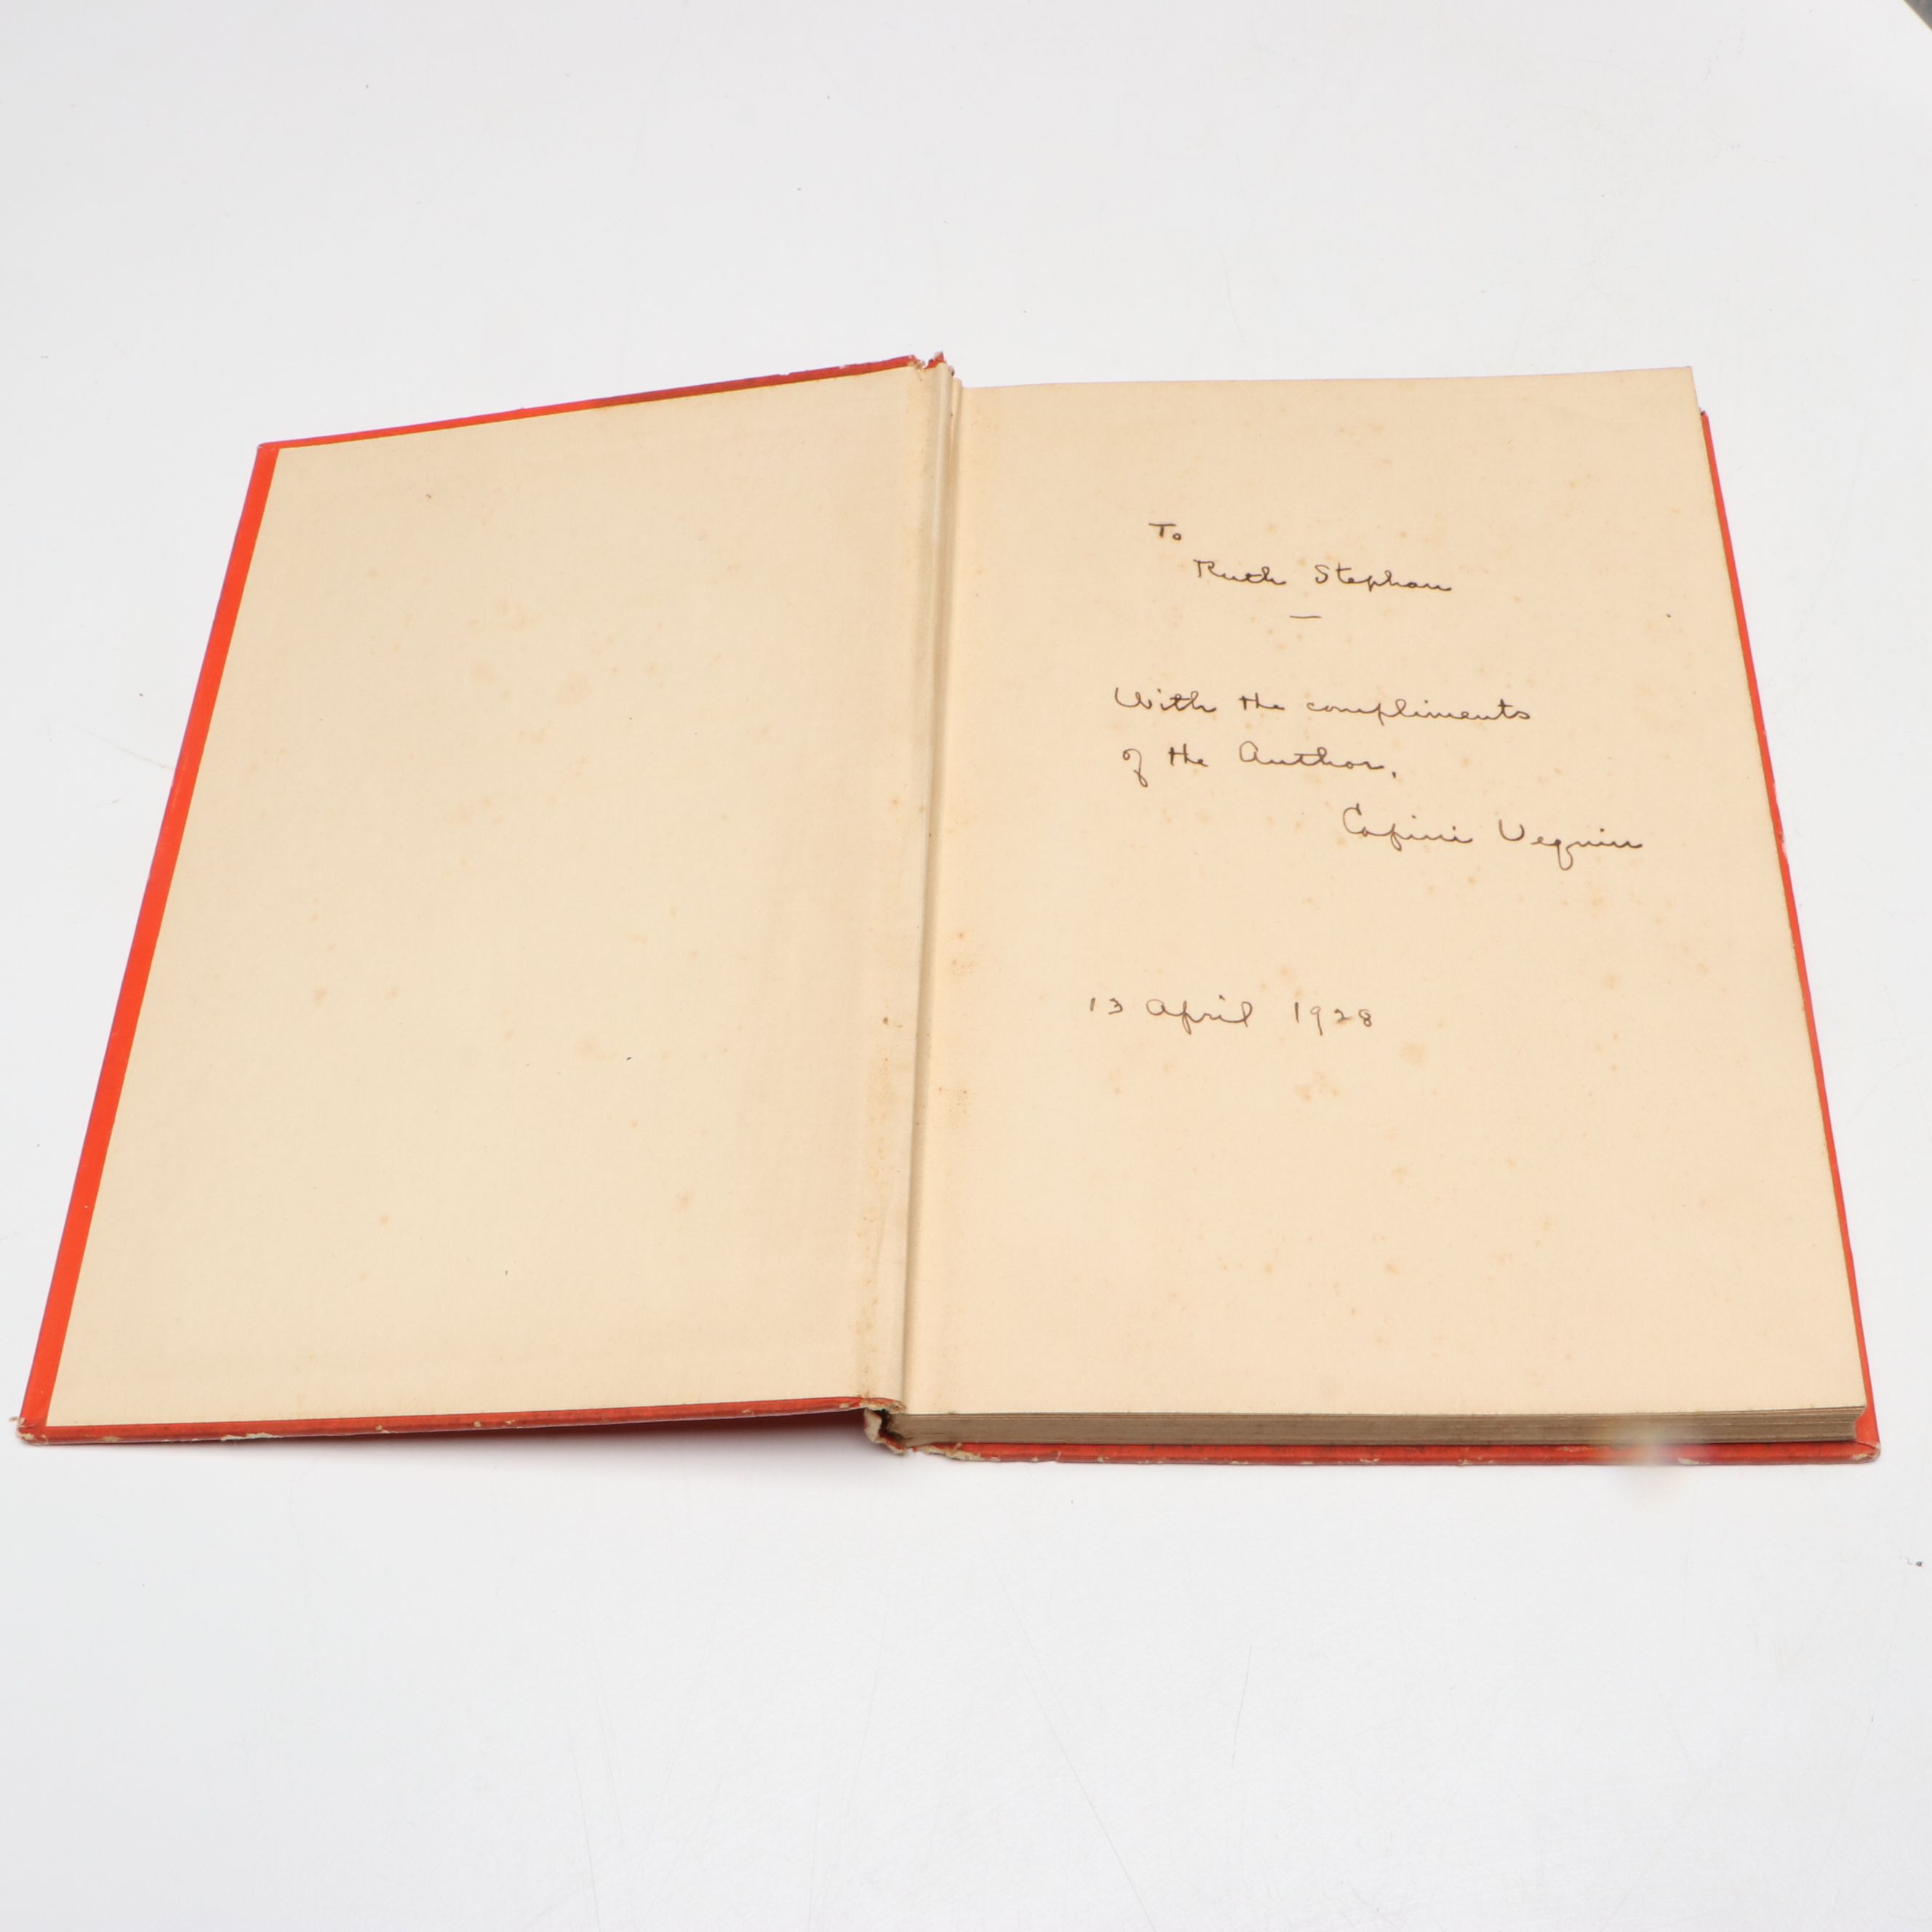 To
Ruth Stephan
With the compliments
of the Author.
Capini Vequin
13 April 1928